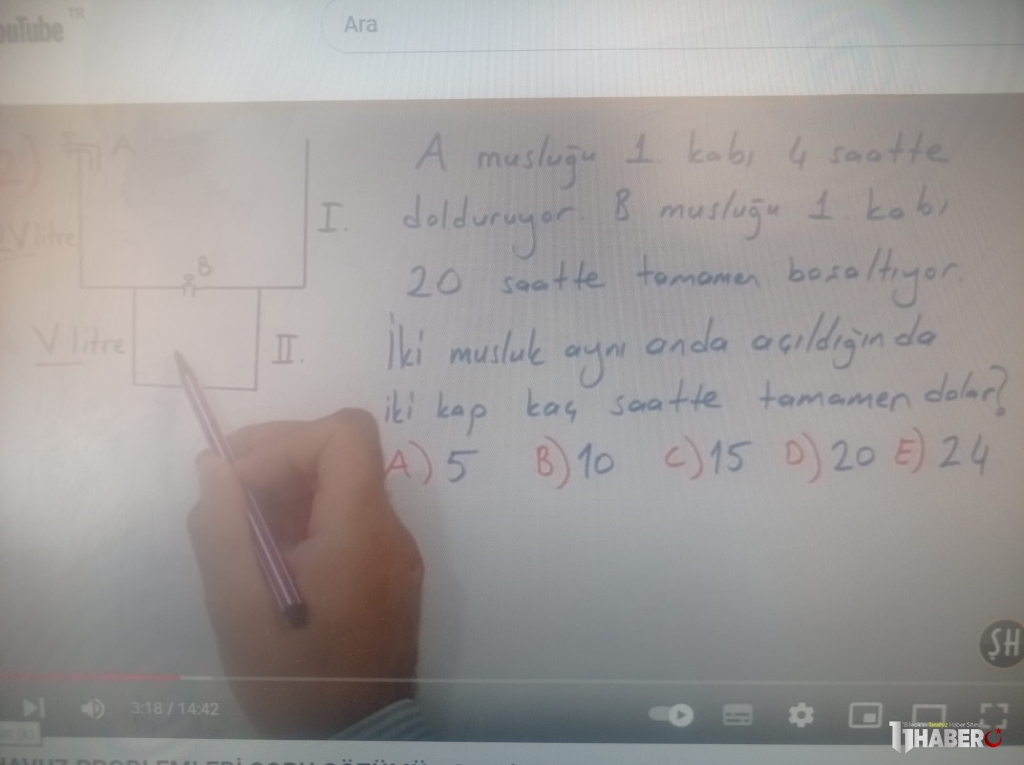 YouTube TR
Ara
2)
A
A musluğu 1. kabı 4 saatte
I.
dolduruyor. B musluğu 1. kabı
2V litre
B
20 saatte tamamen boşaltıyor.
V litre
II.
İki musluk aynı anda açıldığında
iki kap kaç saatte tamamen dolar?
A) 5 B) 10 C) 15 D) 20 E) 24
ŞH
3:18 / 14:42
11HABER
HAVUZ PROBLEMLERİ SORU ÇÖZÜMÜ